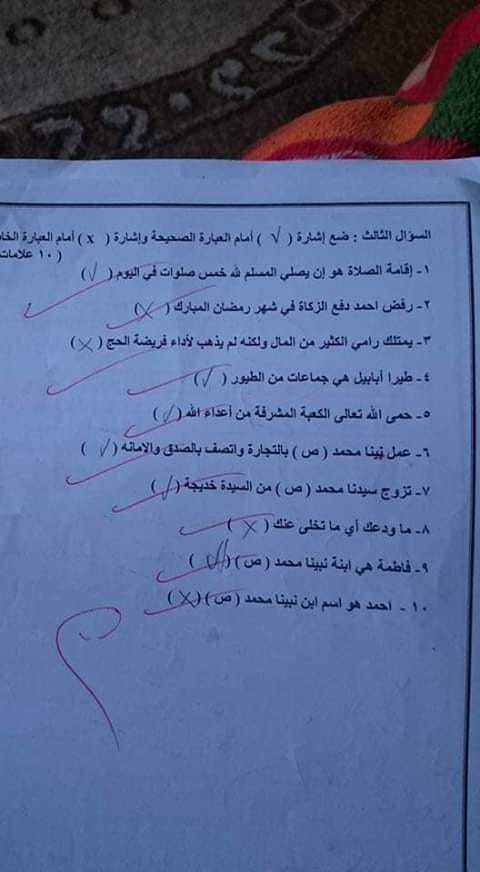 السؤال الثالث : ضع إشارة ( √ ) أمام العبارة الصحيحة وإشارة ( x ) أمام العبارة
( ١٠ علامات
١- إقامة الصلاة هو إن يصلي المسلم لله خمس صلوات في اليوم ( √ )
٢- رفض احمد دفع الزكاة في شهر رمضان المبارك ( X )
٣- يمتلك رامي الكثير من المال ولكنه لم يذهب لأداء فريضة الحج ( X )
٤- طيرا أبابيل هي جماعات من الطيور ( √ )
٥- حمى الله تعالى الكعبة المشرفة من أعداء الله ( √ )
٦- عمل نبينا محمد ( ص ) بالتجارة واتصف بالصدق والامانه ( √ )
٧- تزوج سيدنا محمد ( ص ) من السيدة خديجة ( √ )
٨- ما ودعك أي ما تخلى عنك ( X )
٩- فاطمة هي ابنة نبينا محمد ( ص ) ( √ )
١٠ - احمد هو اسم ابن نبينا محمد ( ص ) ( X )